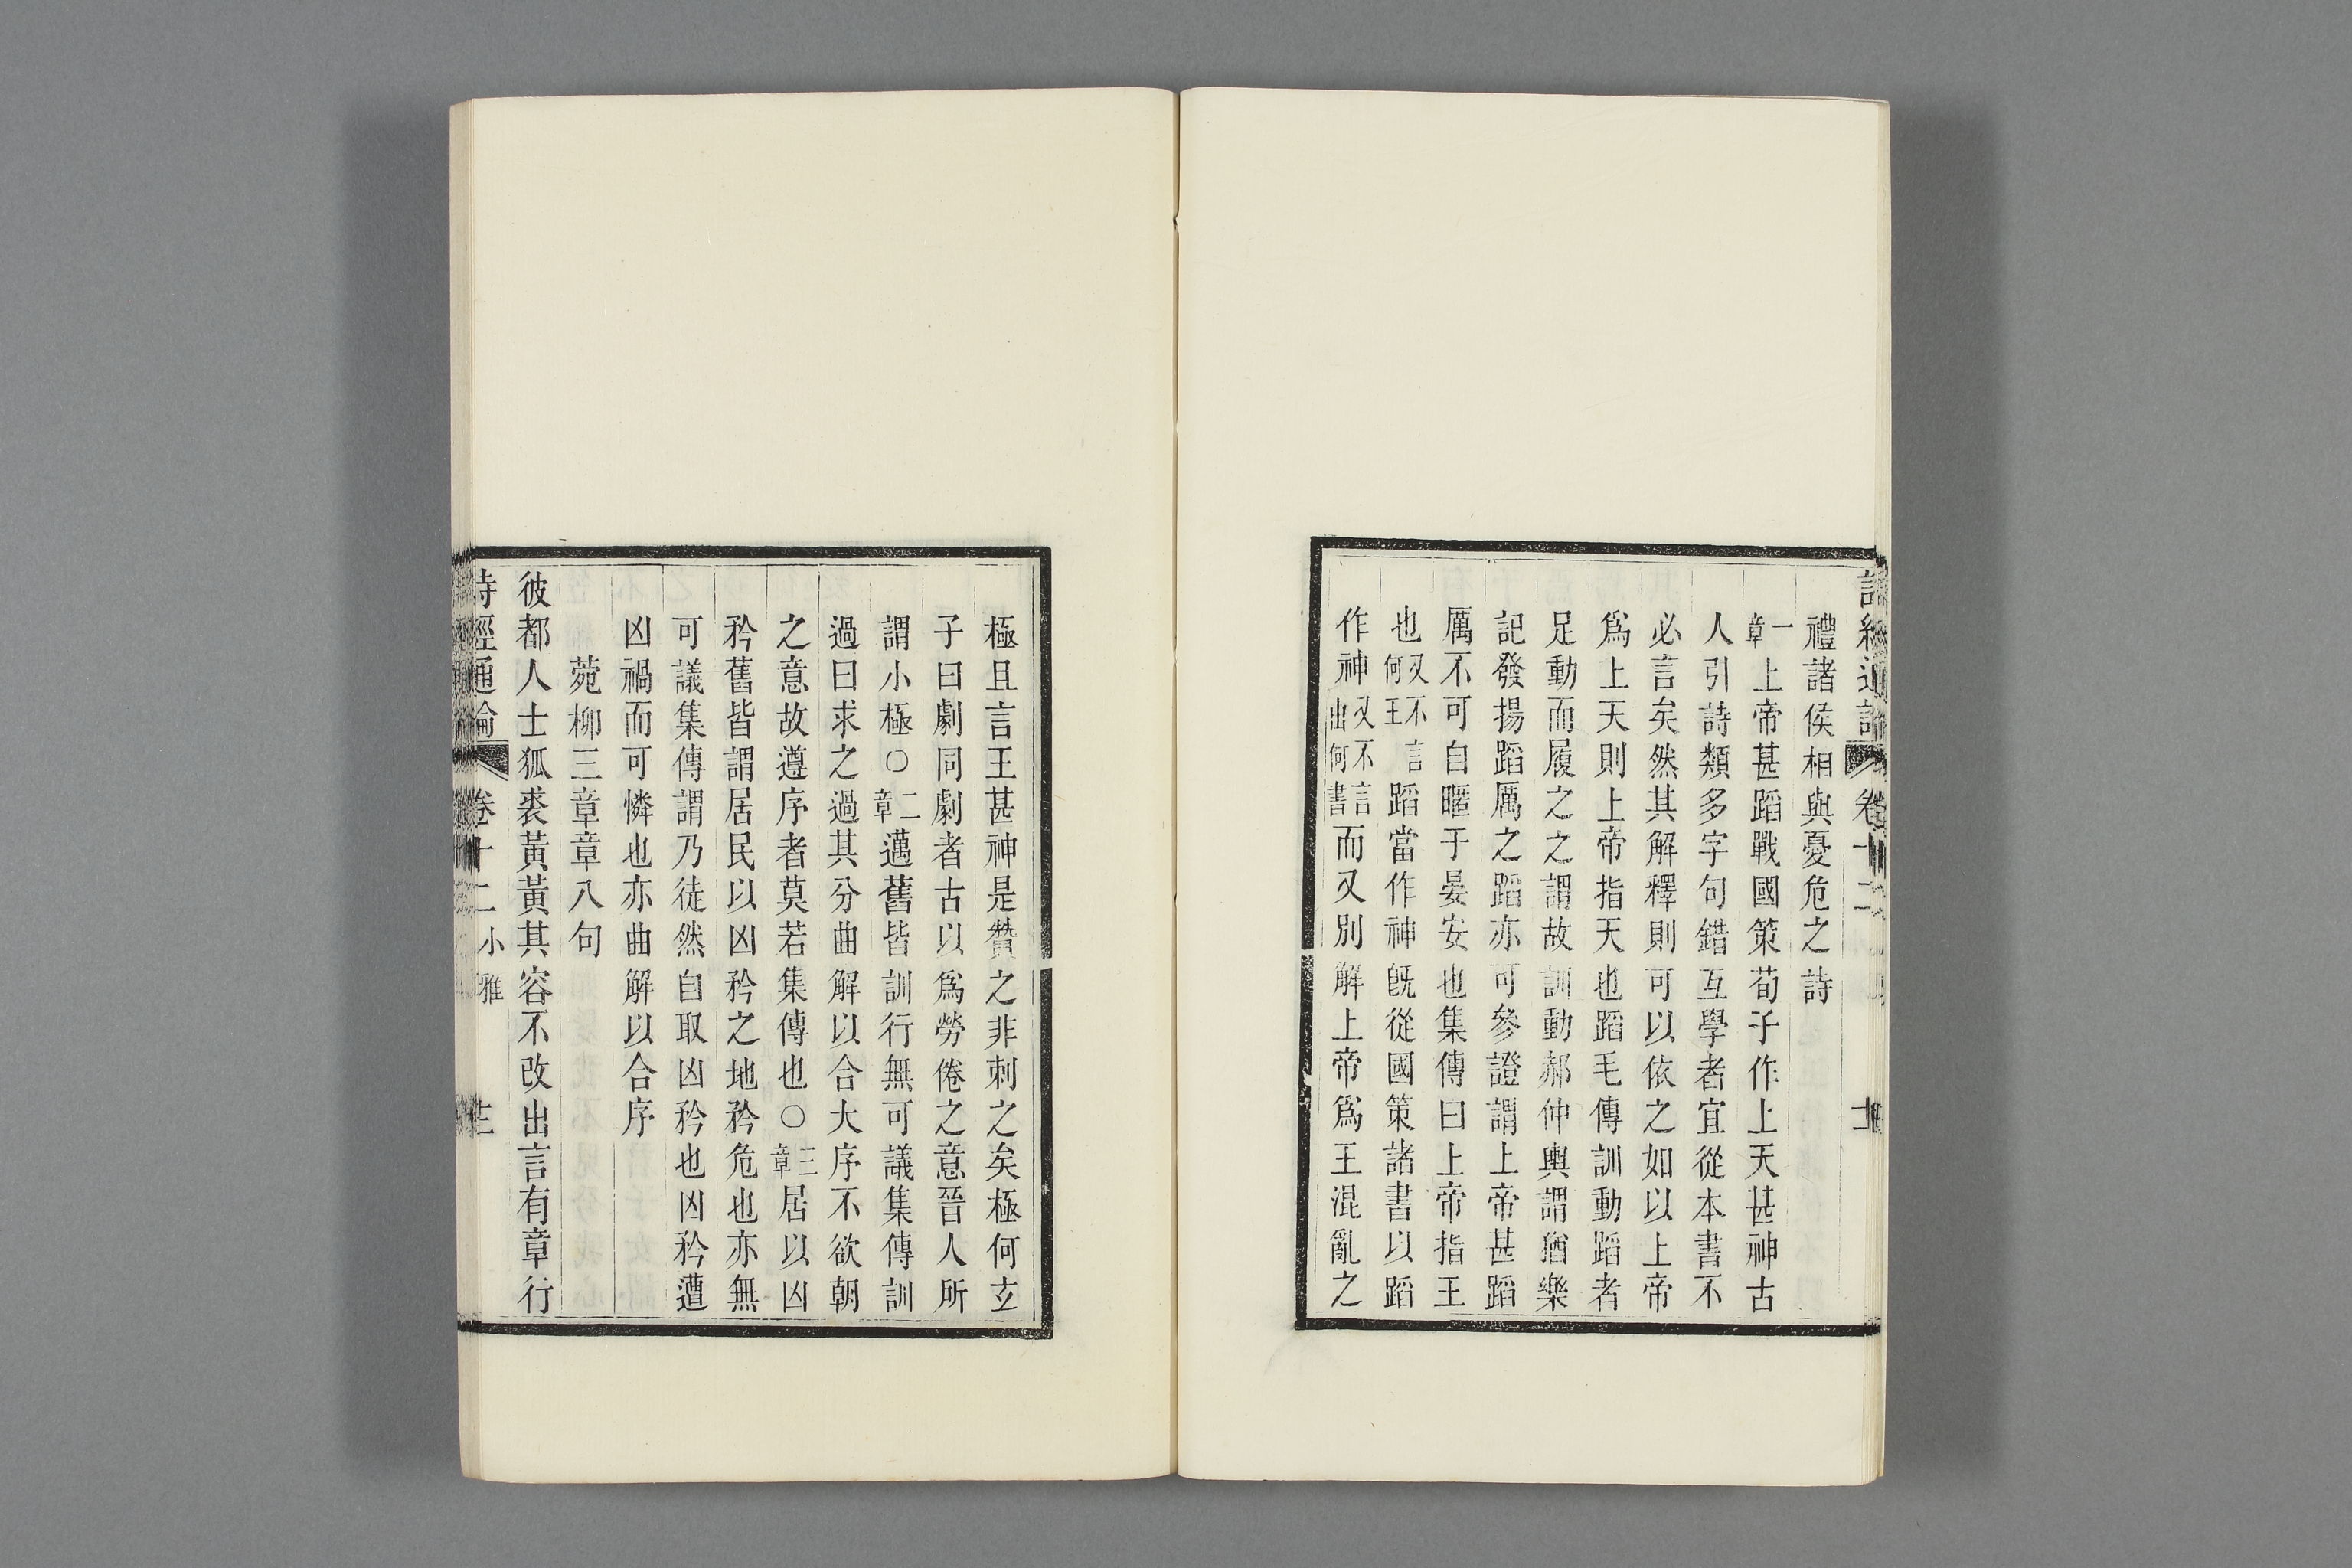 禮諸侯相與憂危之詩
一章上帝甚蹈戰國策荀子作上天甚神古
人引詩類多字句錯互學者宜從本書不
必言矣然其解釋則可以依之如以上帝
爲上天則上帝指天也蹈毛傳訓動蹈者
足動而履之之謂故訓動郝仲輿謂猶樂
記發揚蹈厲之蹈亦可參證謂上帝甚蹈
厲不可自暱于晏安也集傳曰上帝指王
也又不言何王蹈當作神旣從國策諸書以蹈
作神又不言出何書而又別解上帝爲王混亂之
極且言王甚神是贊之非刺之矣極何玄
子曰劇同劇者古以爲勞倦之意晉人所
謂小極○二章邁舊皆訓行無可議集傳訓
過曰求之過其分曲解以合大序不欲朝
之意故遵序者莫若集傳也○三章居以凶
矜舊皆謂居民以凶矜之地矜危也亦無
可議集傳謂乃徒然自取凶矜也凶矜遭
凶禍而可憐也亦曲解以合序
菀柳三章章八句
彼都人士狐裘黃黃其容不改出言有章行
詩經通論 卷十二 小雅